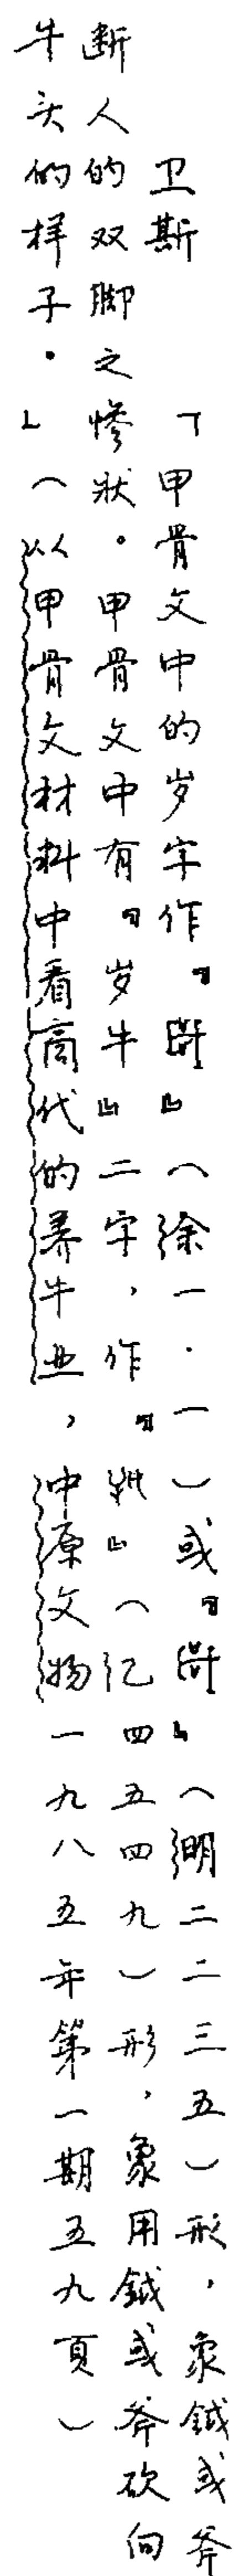 卫斯　「甲骨文中的岁字作『』（徐一·一）或『』（明二二三五）形，象鉞或斧
断人的双脚之惨状。甲骨文中有『岁牛』二字，作『』（乙四五四九）形，象用鉞或斧砍向
牛头的样子。」（以甲骨文材料中看商代的养牛业，中原文物一九八五年第一期五九頁）